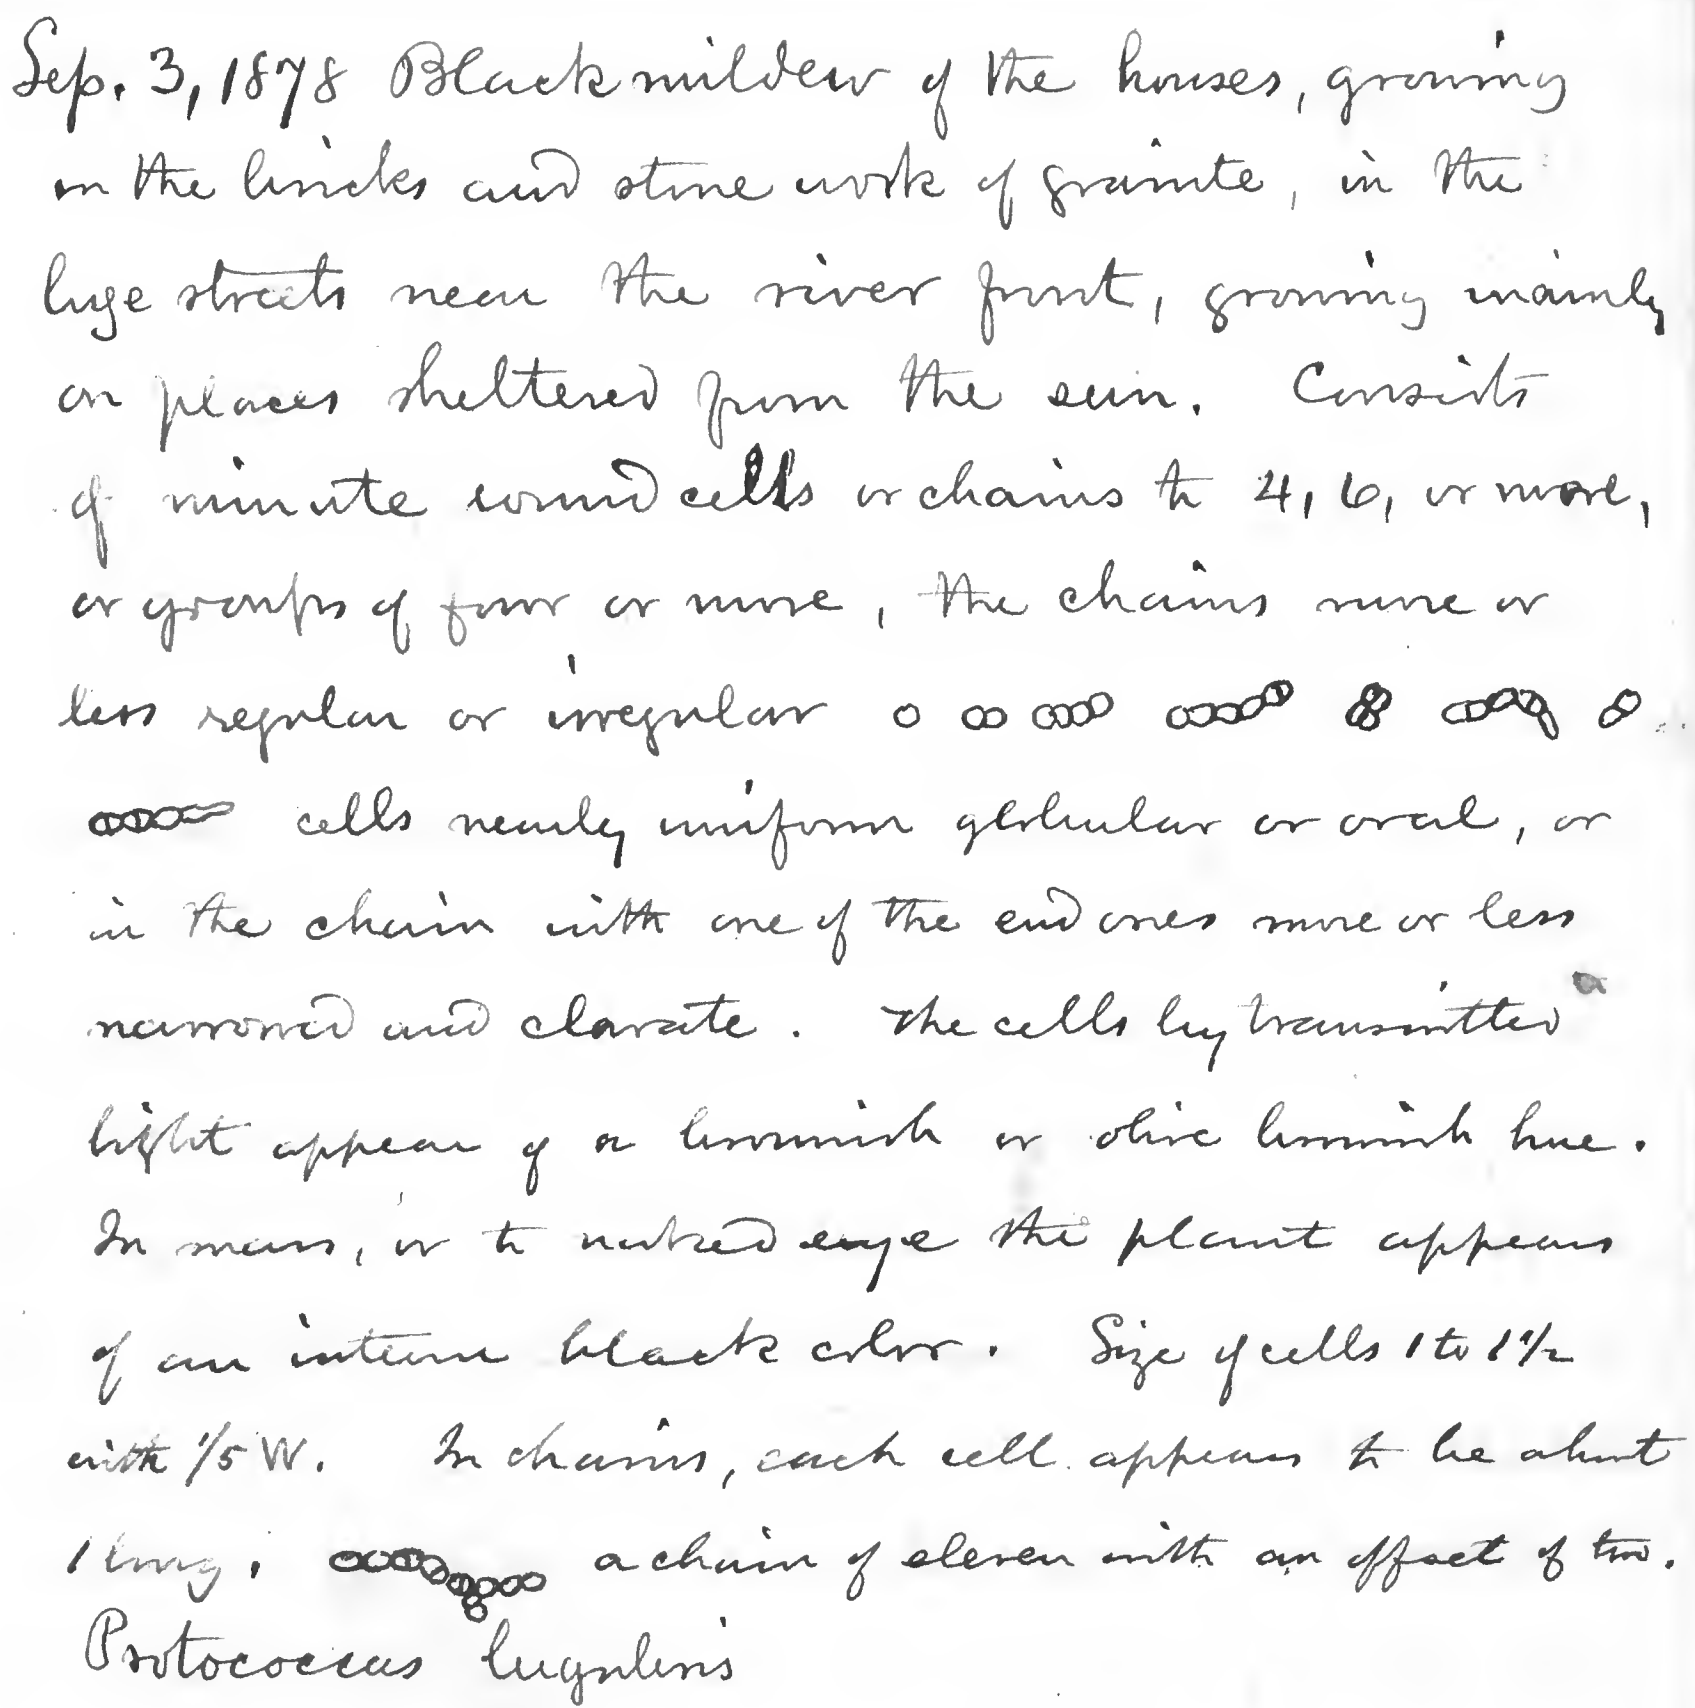 Sep. 3, 1878 Black mildew of the houses, growing
on the bricks and stone work of granite, in the
large streets near the river front, growing mainly
on places sheltered from the sun. Consists
of minute round cells or chains to 4, 6, or more,
or groups of four or more, the chains more or
less regular or irregular
cells nearly uniform globular or oval, or
in the chain with one of the end ones more or less
narrowed and clavate. The cells by transmitted
light appear of a brownish or olive brownish hue.
In mass, or to naked eye the plant appears
of an intense black color. Size of cells 1 to 1 1/2
with 1/5 W. In chains, each cell appears to be about
1 long. a chain of eleven with an offset of two.
Protococcus lugubris